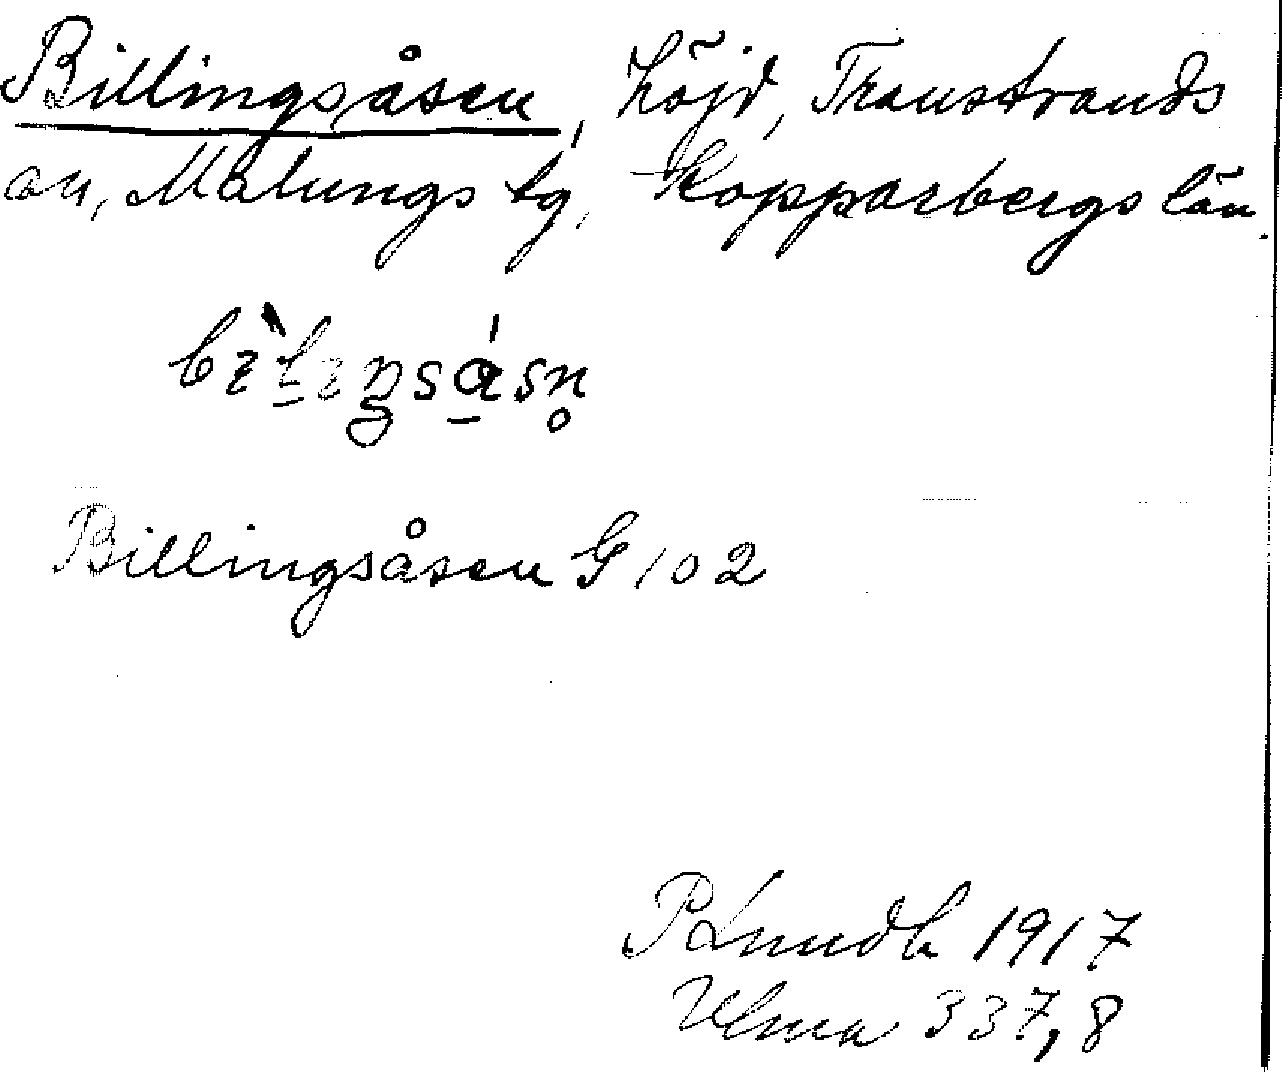 Billingsåsen, höjd, Transtrands
sn, Malungs tg, Kopparbergs län.
Billingsåsen G 102
P Lundb 1917
Ulma 337,8